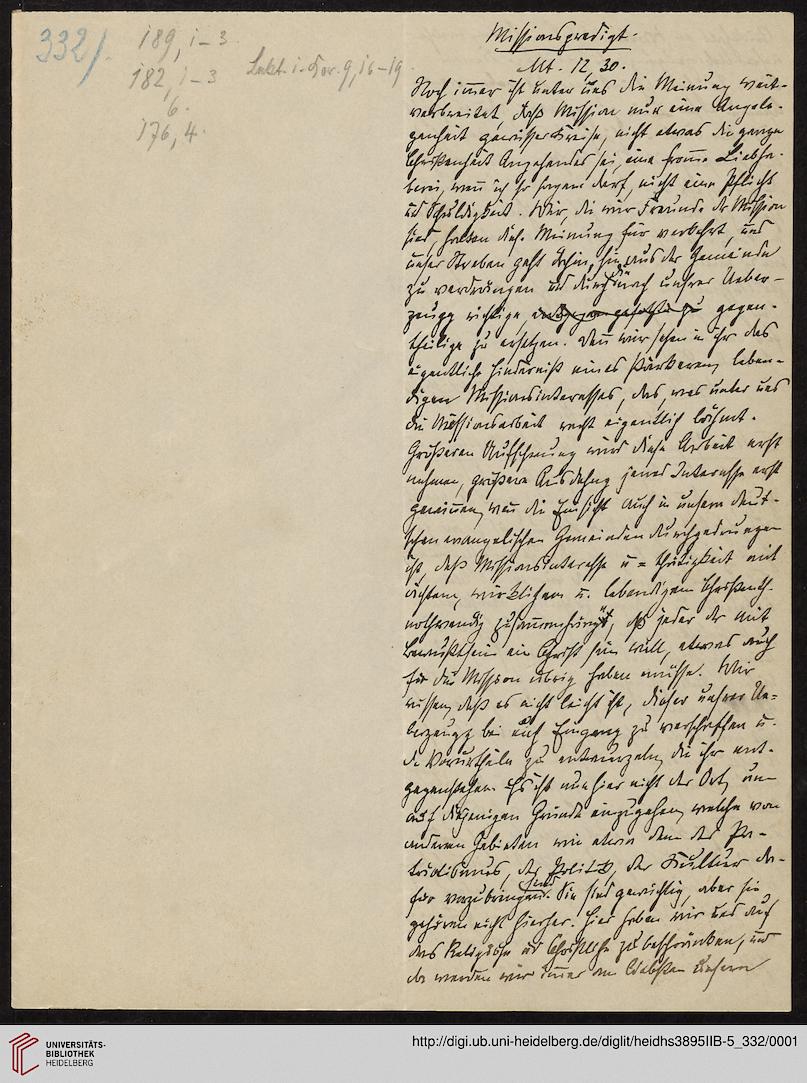 332/.
189, 1-3
182, 1-3
6.
176, 4.
Lekt. 1. Kor. 9, 16-19
Missionspredigt.
Mt. 12, 30.
Noch immer ist unter uns die Meinung weit-
verbreitet, daß Mission nur eine Angele-
genheit gewisser Kreise, nicht etwas die ganze
Christenheit Angehendes sei, eine fromme Liebha-
berei, wenn ich so sagen darf, nicht eine Pflicht
und Schuldigkeit. Wir, die wir Freunde der Mission
sind, halten diese Meinung für verkehrt, und
unser Streben geht dahin, sie aus der Gemeinde
zu verdrängen und durch die nach unsrer Ueber-
zeugg richtige, gegen-
theilige zu ersetzen. Denn wir sehen in ihr das
eigentliche Hinderniß eines stärkeren, leben-
digen Missionsinteresses, das, was unter uns
die Missionsarbeit recht eigentlich lähmt.
Größeren Aufschwung wird diese Arbeit erst
nehmen, größere Ausdehng jenes Interesse erst
gewinnen, wenn die Einsicht auch in unsern deut-
schen evangelischen Gemeinden durchgedrungen
ist, daß Missionsinteresse u = thätigkeit mit
ächtem, wirklichem u. lebendigem Christenth.
nothwendig zusammenhängt, daß jeder der mit
Bewußtsein ein Christ sein will, etwas auch
für die Mission übrig haben müsse. Wir
wissen, daß es nicht leicht ist, dieser unsrer Ue-
berzeugg Eingang zu verschaffen u.
die Vorurtheile zu entwurzeln, die ihr ent-
gegenstehen. Es ist nun hier nicht der Ort, um
auf diejenigen Gründe einzugehen, welche von
anderen Gebieten wie etwa dem des Pa-
triotismus, der Politik, der Kultur da-
für vorzubringen sind. Sie sind gewichtig, aber sie
gehören nicht hierher. Hier haben wir uns auf
das Religiöse und Christliche zu beschränken, und
da werden wir immer am liebsten unsern
UNIVERSITÄTS-
BIBLIOTHEK
HEIDELBERG
http://digi.ub.uni-heidelberg.de/diglit/heidhs3895IIB-5_332/0001